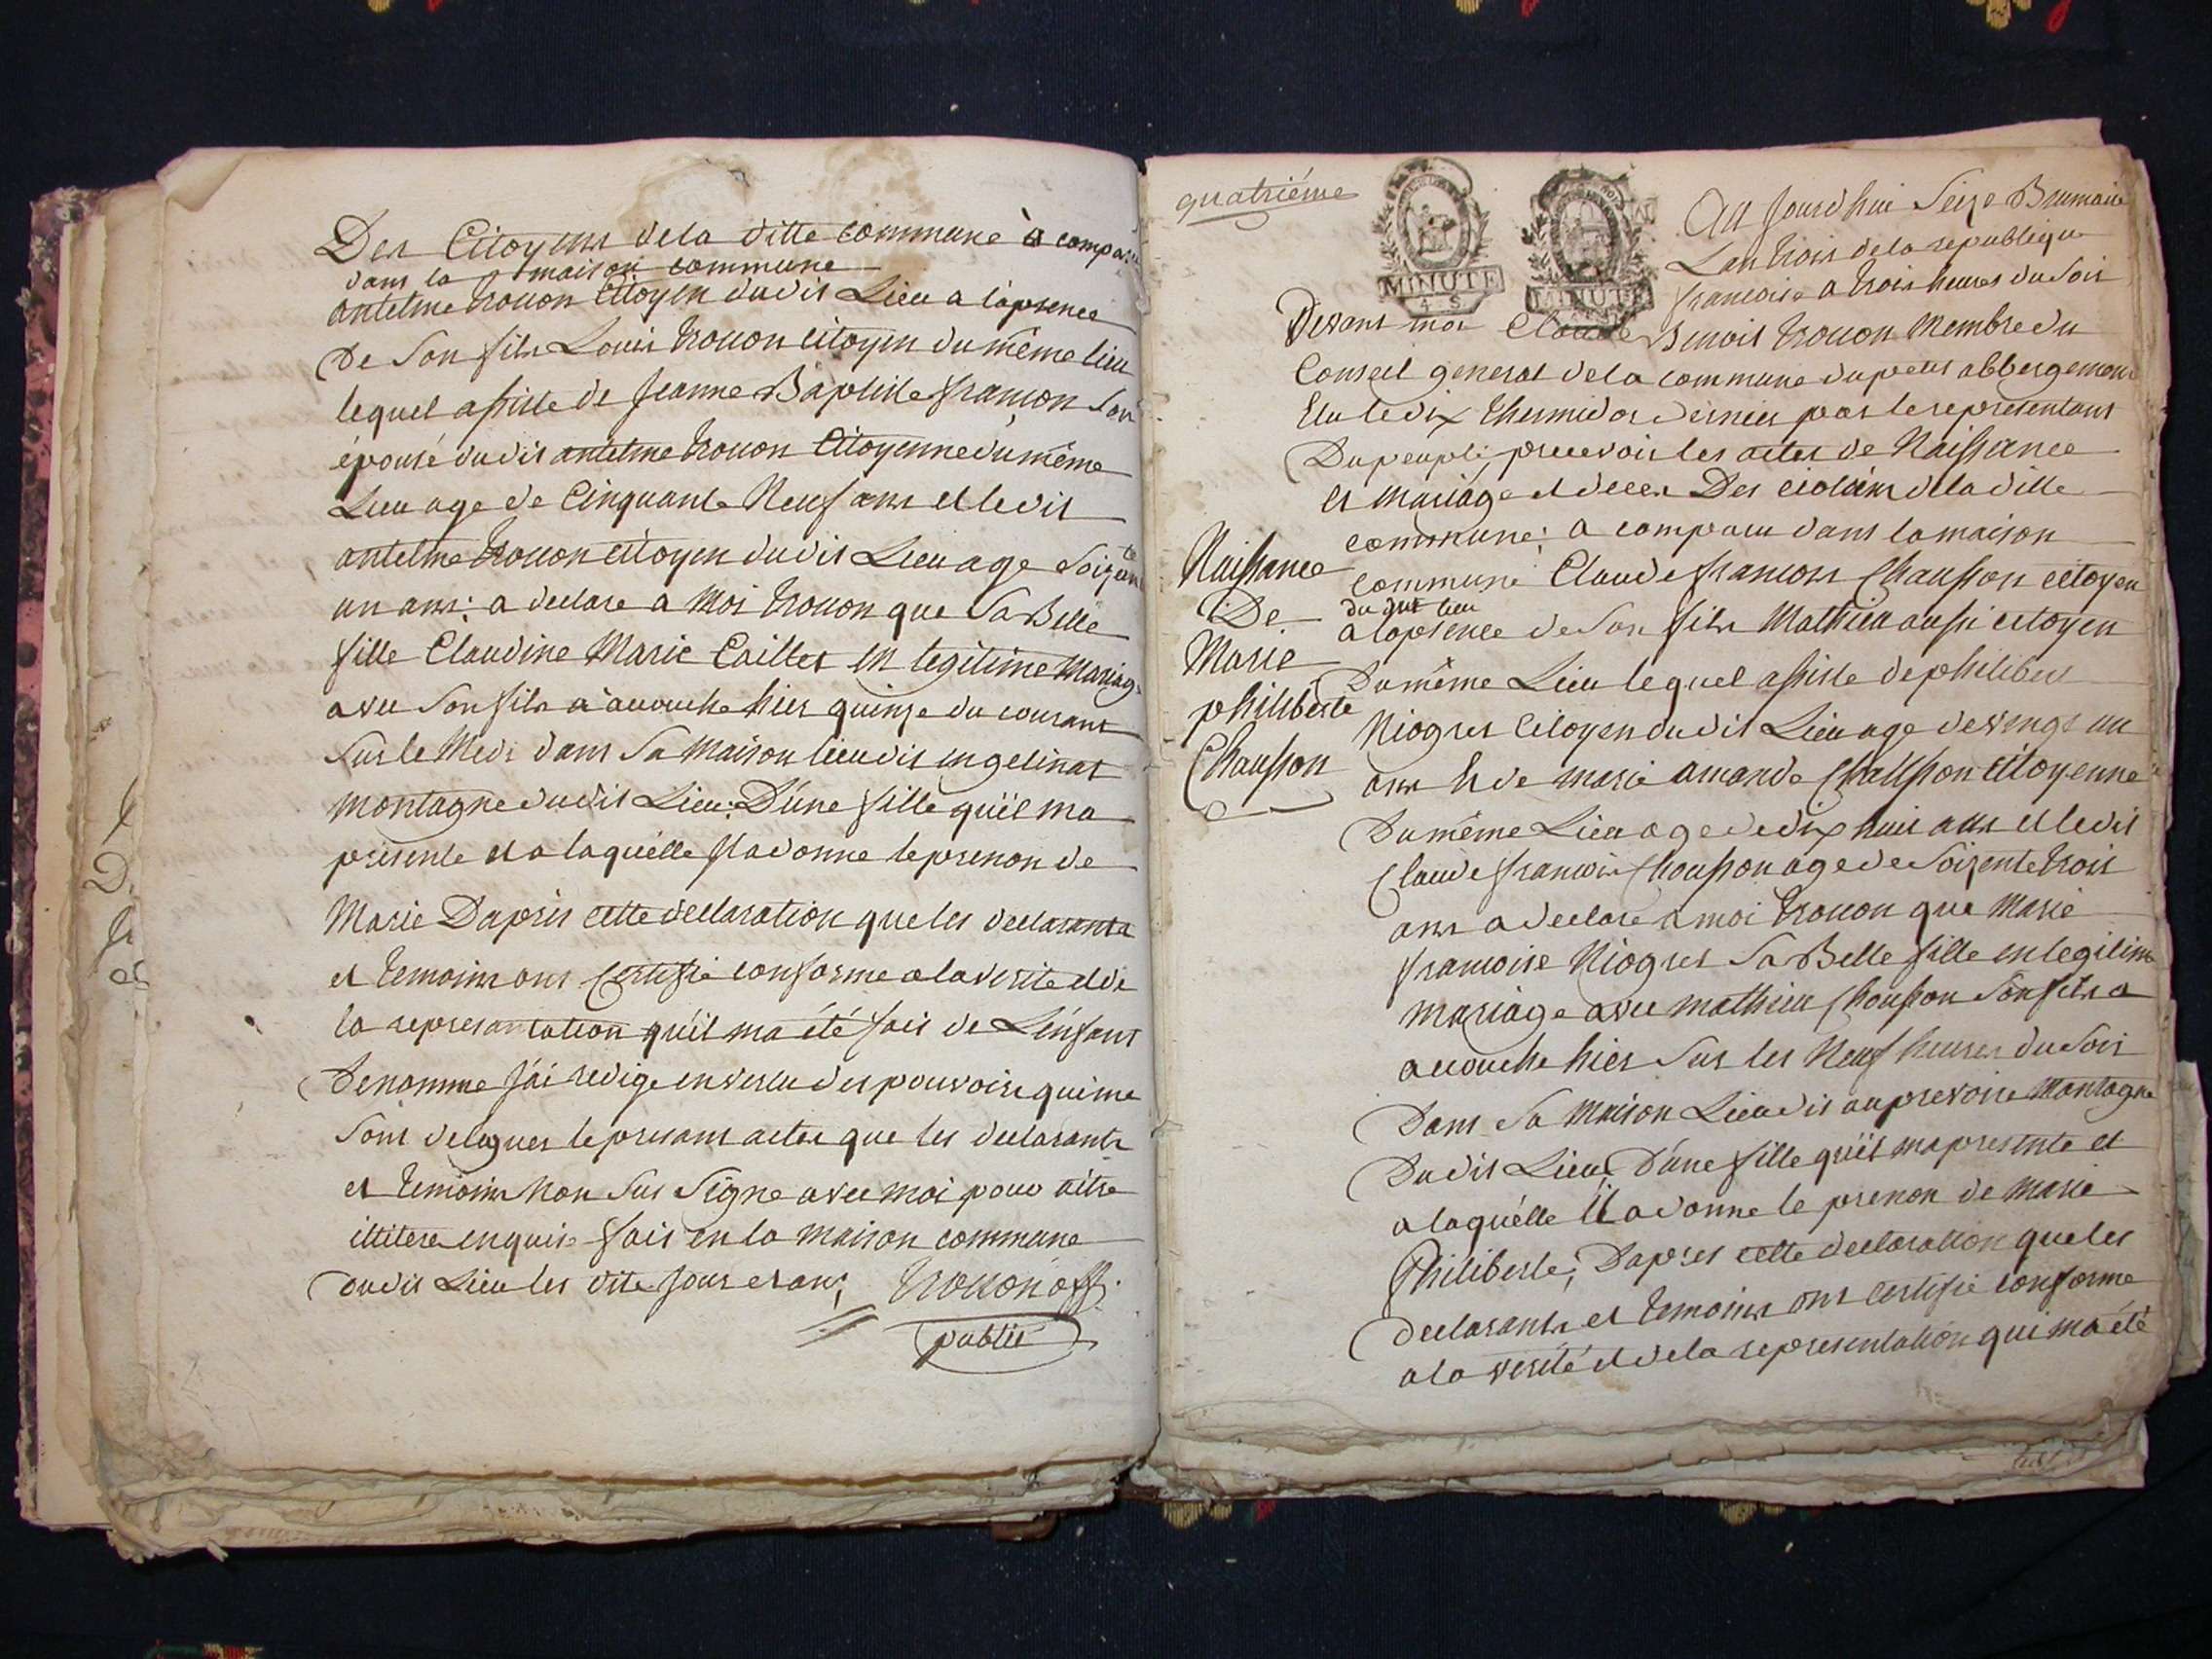 Des Citoyens dela ditte commune à comparu
dans la maison commune
antelme trouon Citoyen dudit Lieu a lapsence
De Son fils Louis trouon citoyen du même lieu
lequel assiste de jeanne Baptiste françon Son
épouse dudit antelme trouon Citoyenne du même
Lieu age de Cinquante Neuf ans et ledit
antelme trouon citoyen dudit Lieu age Soizante
un ans: a declare a moi trouon que Sa Belle
fille Claudine Marie Caillet en legitime Mariage
avec Son fils a acouche hier quinze du courant
Sur le Medi dans Sa Maison lieudit en gelinas
montagne dudit Lieu: D'une fille qu'il ma
presente et a laquelle il a donne le prenon de
Marie Dapres cette declaration que les declarants
et temoins ont Certifie conforme a la verite et de
la representation qu'il ma été fait de L'enfant
Denomme j'ai redige en vertu des pouvoirs qui me
Sont delegues le presant acte que les declarants
et temoins Non Sus Signe avec moi pour aitre
illitere enquis fait en la maison commune
dudit Lieu les dite jour et an; trouon off.
public
quatriéme
MINUTE
4 S
MINUTE
Au jourdhui Seize Brumaire
Lan trois dela republique
francoise a trois heures du Soir
Devant moi Claude Benoit trouon Membre du
Conseil general dela commune du petit abbergement
Elu le dix thermidor dernier par le representant
Du peuple, pr recevoir les actes de Naissance
et mariage et deces Des citoiens dela ditte
commune: a comparu dans la maison
commune Claude francois Chausson citoyen
du dit lieu
a lapsence de Son fils Mathieu aussi citoyen
Du même Lieu lequel assiste de philibert
Niogret Citoyen dudit Lieu age de vingt un
ans et de marie amande Chausson citoyenne
Du même Lieu age de dix huit ans et ledit
Claude francois Chausson age de Soizente trois
ans a declare a moi trouon que Marie
francoise Niogret Sa Belle fille en legitime
mariage avec mathieu Chausson Son fils a
acouche hier Sur les Neuf heures du Soir
Dans Sa Maison Lieudit au prevoire Montagne
Dudit Lieu; D'une fille qu'il ma presente et
a laquelle il a donne le prenon de marie
Philiberte; Dapres cette declaration que les
declarants et temoins ont certifie conforme
a la verité et dela representation qui ma été
Naissance
De
Marie
philiberte
Chausson